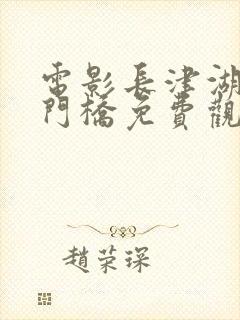 電影長津湖
門橋免費觀
趙榮琛